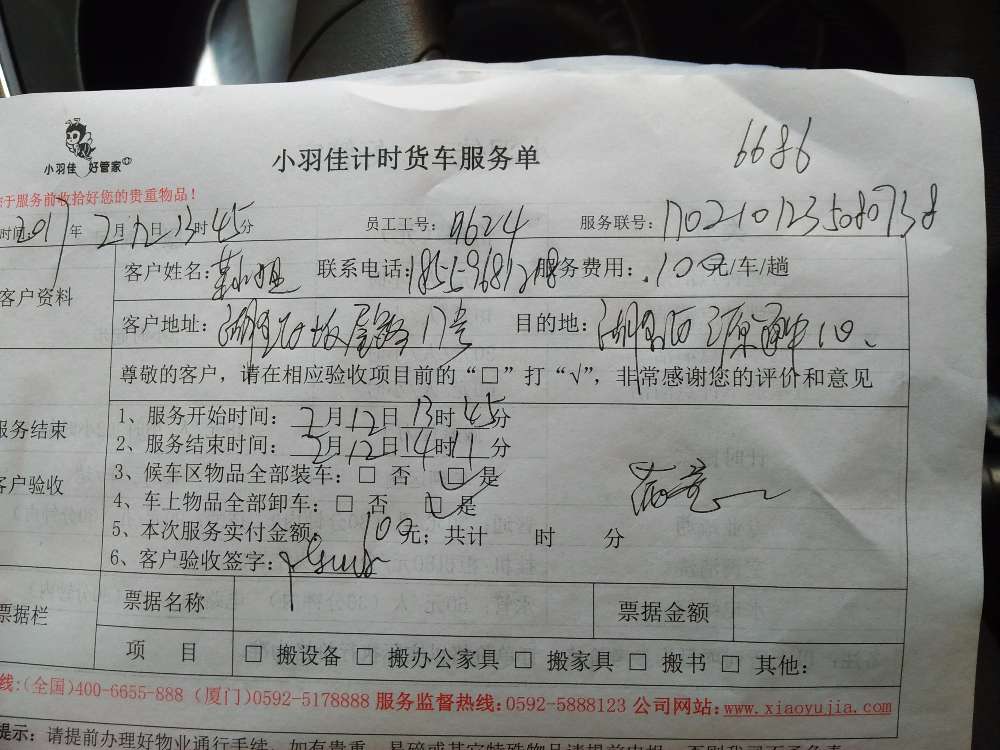 小羽佳 好管家
小羽佳计时货车服务单
6686
于服务前收拾好您的贵重物品！
时间: 2017 年 2 月 12 日 13 时 45 分 员工工号: 服务联号:
客户资料
客户姓名: 联系电话: 服务费用: 100元/车/趟
客户地址: 17号 目的地:
尊敬的客户，请在相应验收项目前的“□”打“√”，非常感谢您的评价和意见
服务结束
客户验收
1、服务开始时间: 2月12日13时45分
2、服务结束时间: 2月12日14时11分
3、候车区物品全部装车: □ 否 □ 是
4、车上物品全部卸车: □ 否 □ 是
5、本次服务实付金额: 100元; 共计 时 分
6、客户验收签字:
满意
票据栏
票据名称 票据金额
项 目 □ 搬设备 □ 搬办公家具 □ 搬家具 □ 搬书 □ 其他:
线:(全国)400-6655-888 (厦门)0592-5178888 服务监督热线:0592-5888123 公司网站:www.xiaoyujia.com
提示: 请提前办理好物业通行手续